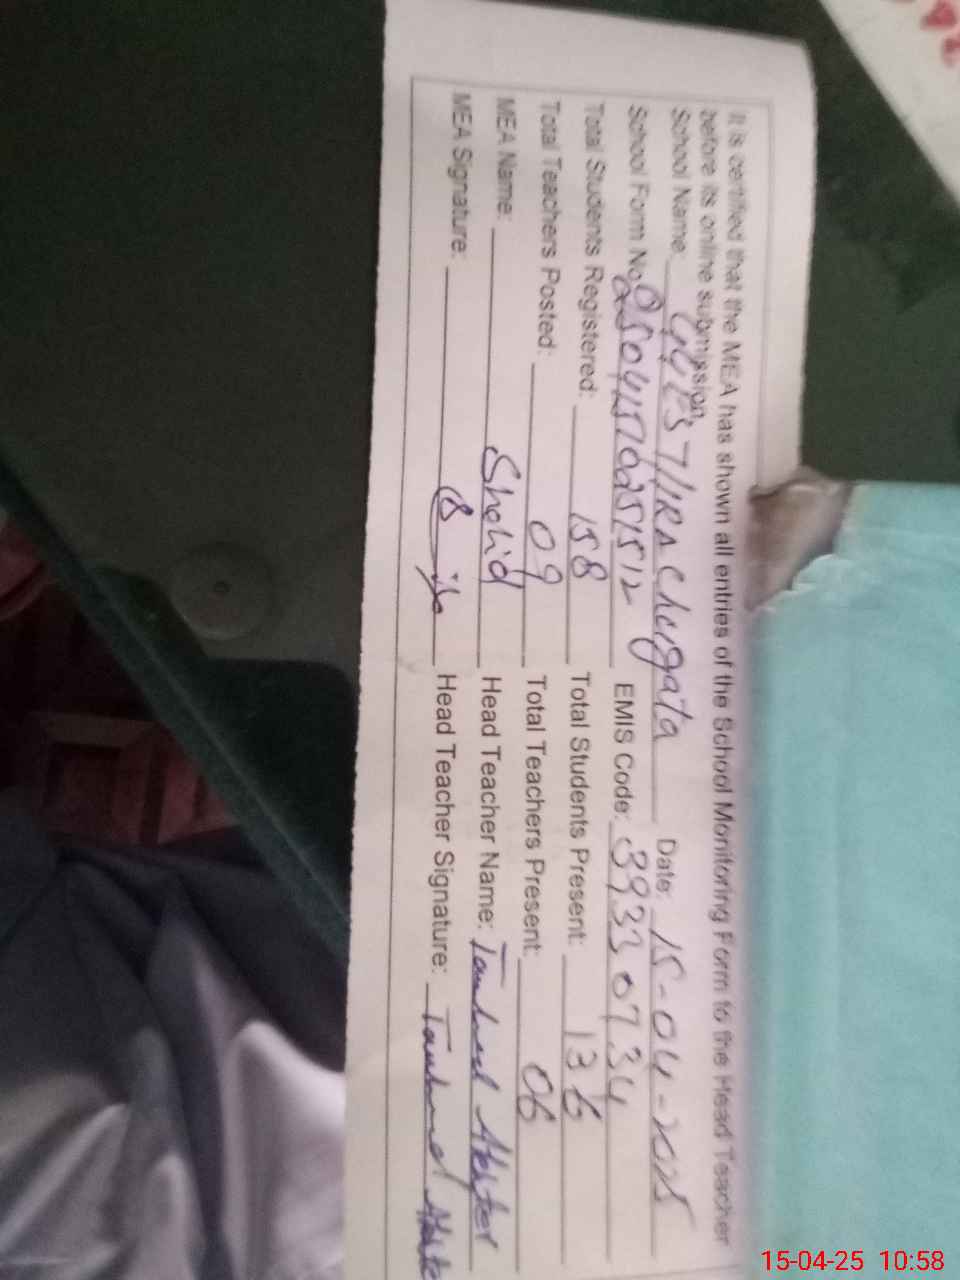 It is certified that the MEA has shown all entries of the School Monitoring Form to the Head Teacher
before its online submission.
School Name: GGES 7/1RA Chugata Date: 15-04-2025
School Form No. 25041510251512 EMIS Code: 39330734
Total Students Registered: 158 Total Students Present: 136
Total Teachers Posted: 09 Total Teachers Present: 06
MEA Name: Shahid Head Teacher Name: Akhter
MEA Signature: Head Teacher Signature:
15-04-25 10:58